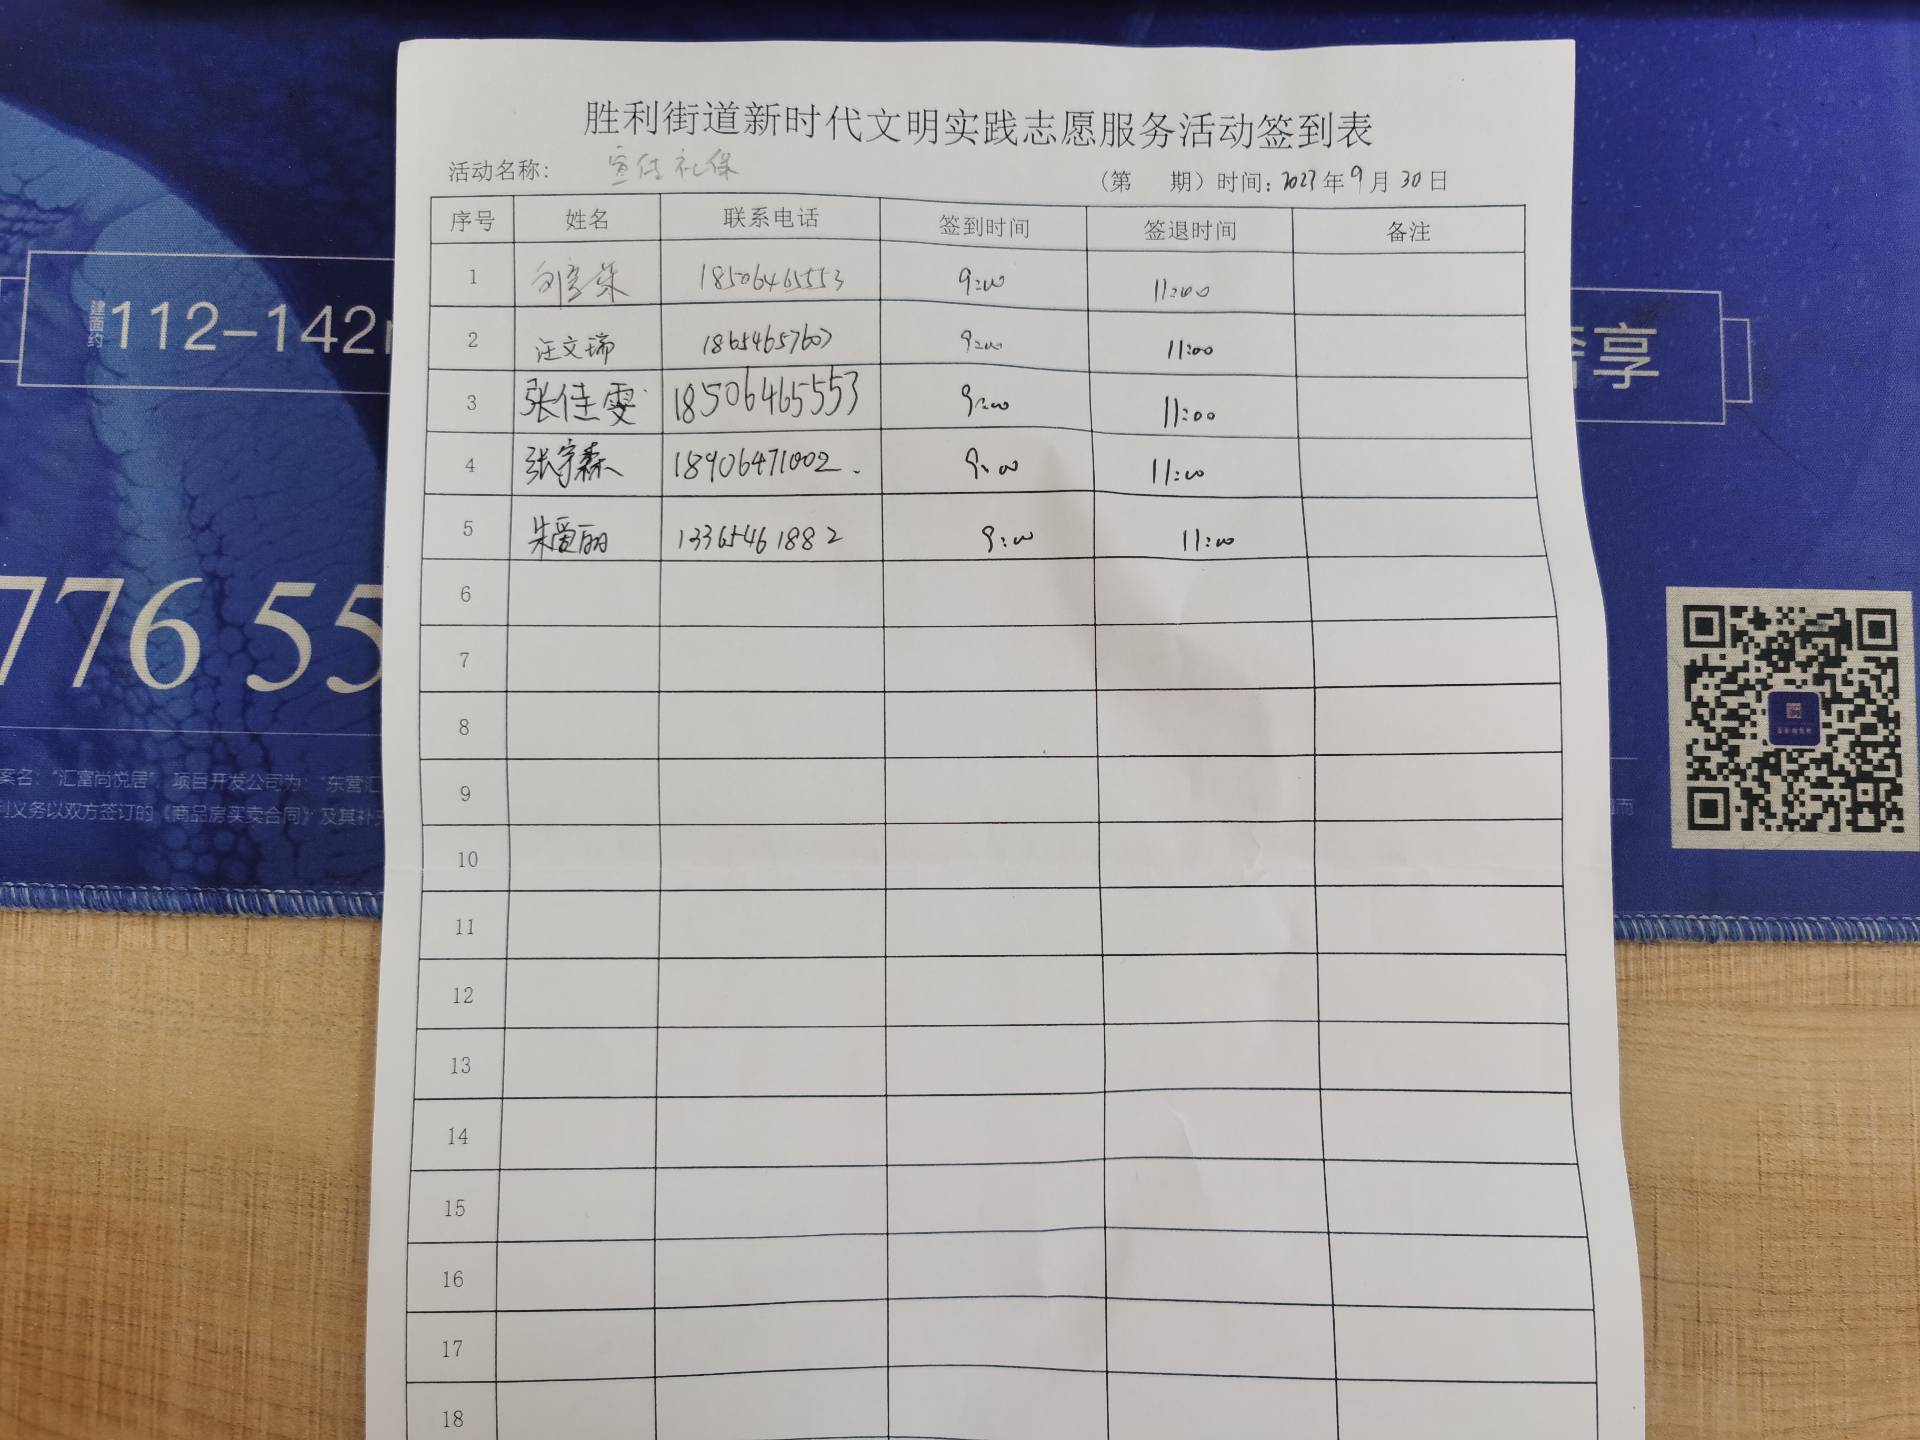 胜利街道新时代文明实践志愿服务活动签到表
活动名称: 宣传社保 (第 期) 时间: 2023年9月30日
序号 姓名 联系电话 签到时间 签退时间 备注
1 18506465553 9:00 11:00
2 汪文瑞 18654657607 9:00 11:00
3 张佳雯 18506465553 9:00 11:00
4 张宇森 18906471002. 9:00 11:00
5 朱爱丽 13365461882 9:00 11:00
6
7
8
9
10
11
12
13
14
15
16
17
18
建面约 112-142
享
776 55
案名: "汇富尚悦居", 项目开发公司为: "东营汇
利义务以双方签订的《商品房买卖合同》及其补
而